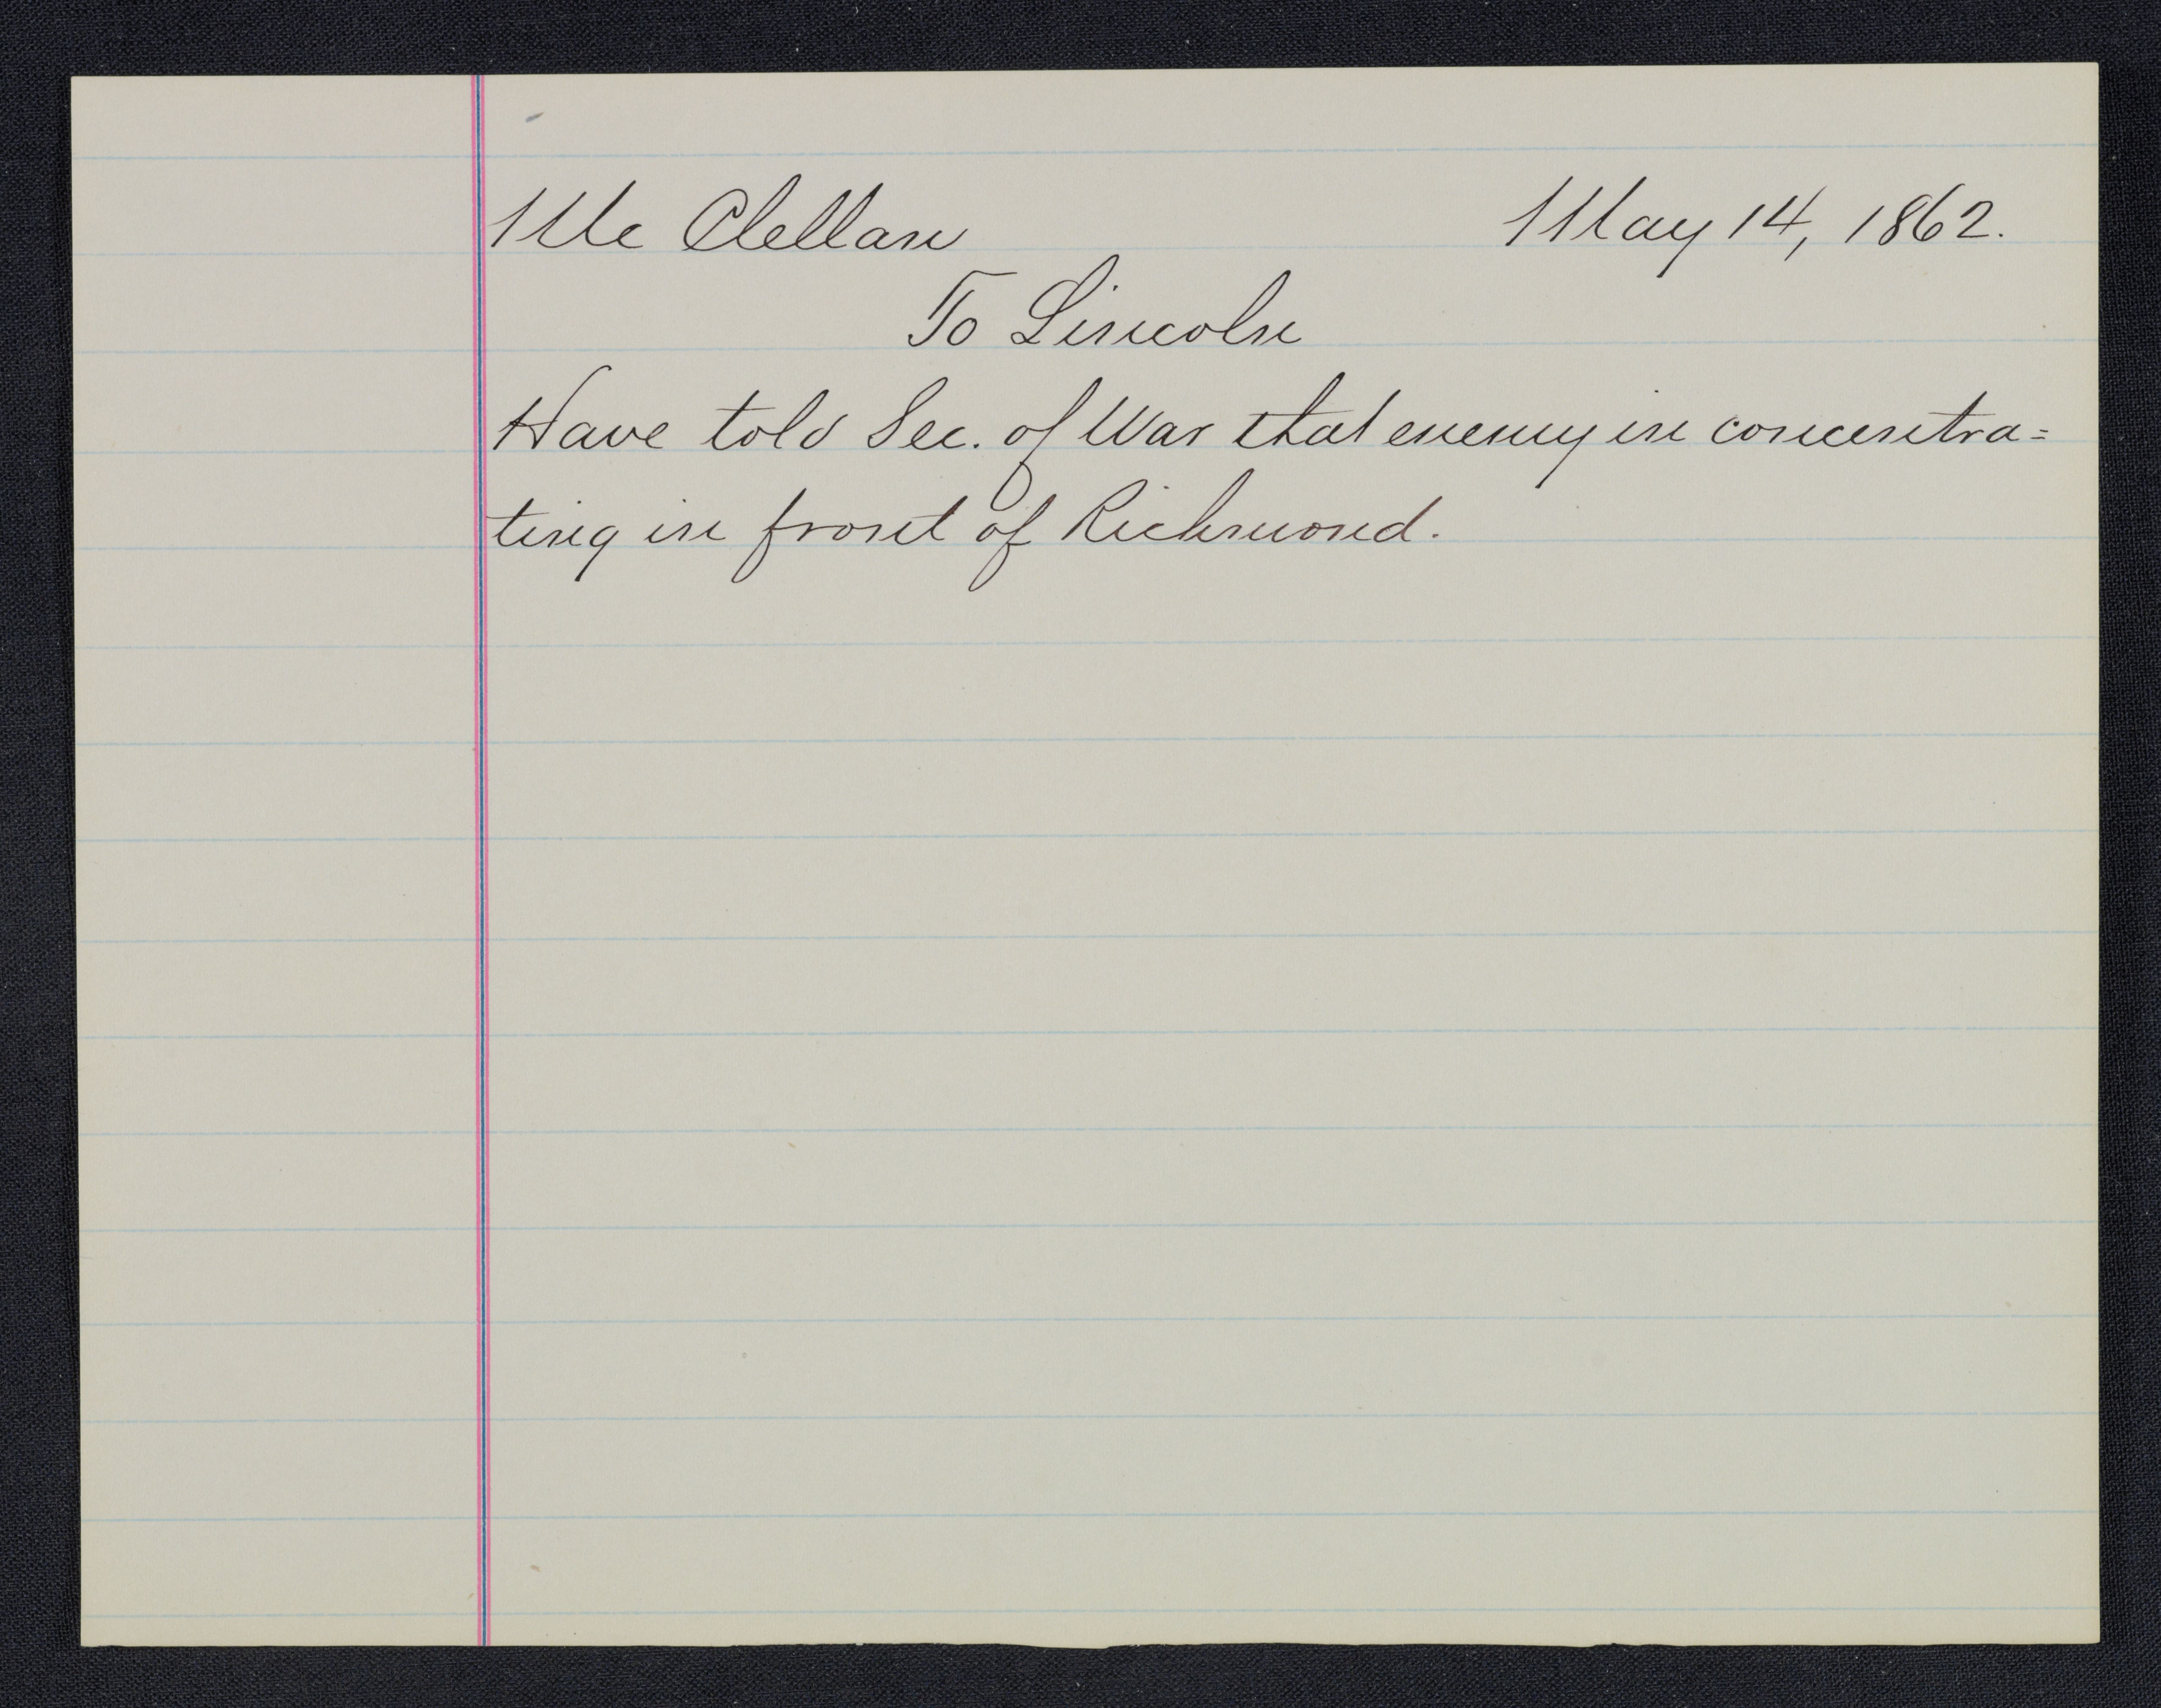 Mc Clellan May 14, 1862.
To Lincoln
Have told Sec. of War that enemy in concentra=
ting in front of Richmond.